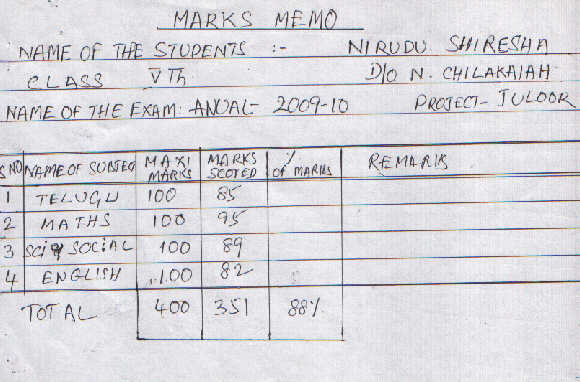 MARKS MEMO
NAME OF THE STUDENTS :- NIRUDU SHIRESHA
CLASS VTh D/O N. CHILAKAIAH
NAME OF THE EXAM: ANUAL- 2009-10 PROJECT- JULOOR
S NO NAME OF SUBJEC MAXI MARKS MARKS SCOTED % OF MARKS REMARKS
1 TELUGU 100 85
2 MATHS 100 95
3 Sci & SOCIAL 100 89
4 ENGLISH 100 82
TOTAL 400 351 88%